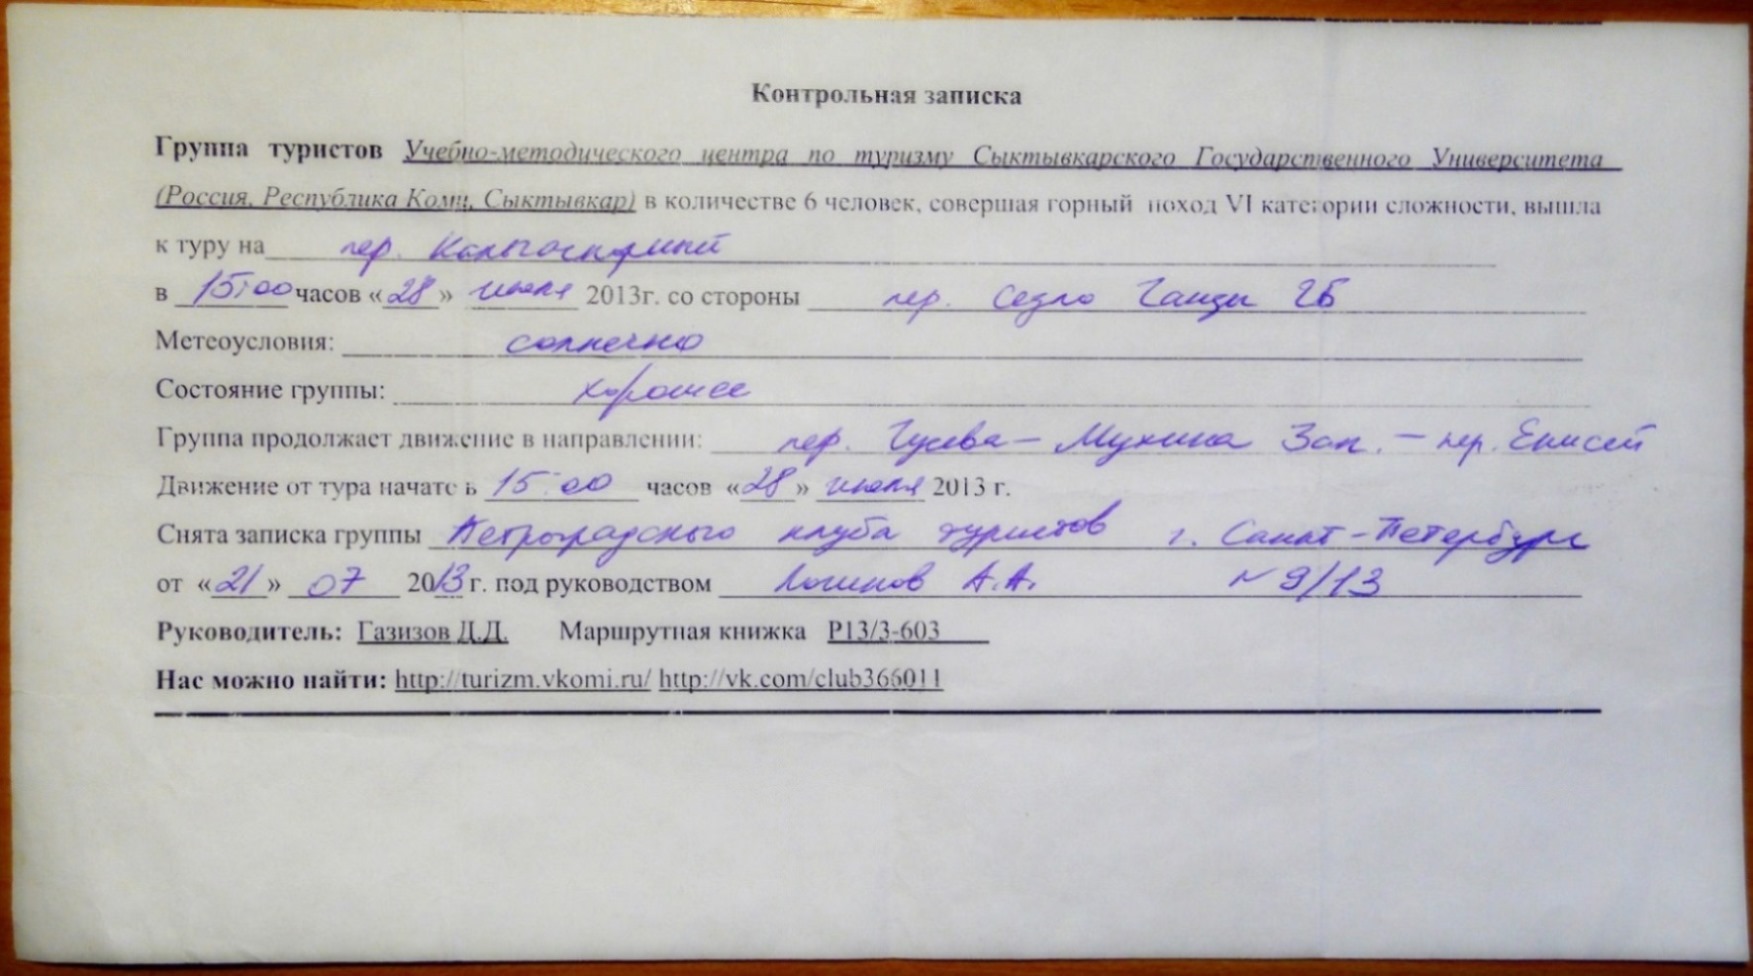 Контрольная записка
Группа туристов Учебно-методического центра по туризму Сыктывкарского Государственного Университета
(Россия, Республика Коми, Сыктывкар) в количестве 6 человек, совершая горный поход VI категории сложности, вышла
к туру на пер.
в 15:00 часов «28» июля 2013г. со стороны пер. Седло Ганзы 2Б
Метеоусловия: солнечно
Состояние группы: хорошее
Группа продолжает движение в направлении: пер. Гусева – Мухина Зап. – пер. Енисей
Движение от тура начато в 15:00 часов «28» июля 2013 г.
Снята записка группы Петроградского клуба туристов г. Санкт-Петербург
от «21» 07 2013 г. под руководством А.А. №9/13
Руководитель: Газизов Д.Д. Маршрутная книжка Р13/3-603
Нас можно найти: http://turizm.vkomi.ru/ http://vk.com/club366011